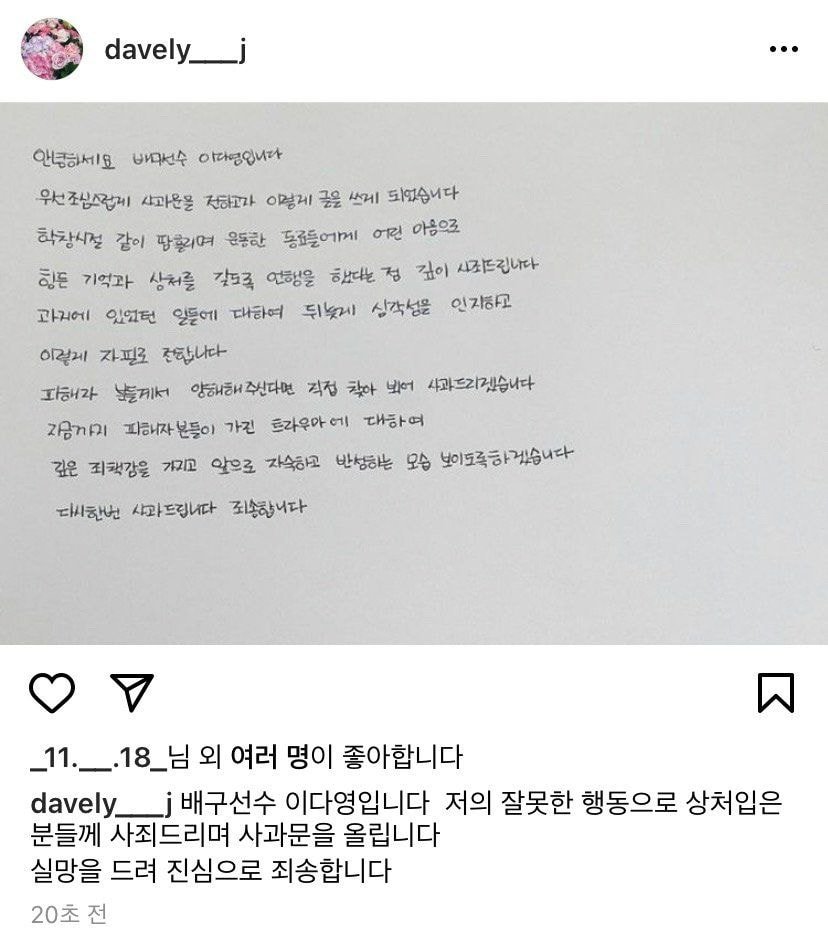 davely___j
안녕하세요 배구선수 이다영입니다
우선 조심스럽게 사과문을 전하고자 이렇게 글을 쓰게 되었습니다
학창시절 같이 땀흘리며 운동한 동료들에게 어린 마음으로
힘든 기억과 상처를 갖도록 언행을 했다는 점 깊이 사죄드립니다
과거에 있었던 일들에 대하여 뒤늦게 심각성을 인지하고
이렇게 자필로 전합니다
피해자 분들께서 양해해주신다면 직접 찾아 뵈어 사과드리겠습니다
지금까지 피해자분들이 가진 트라우마에 대하여
깊은 죄책감을 가지고 앞으로 자숙하고 반성하는 모습 보이도록하겠습니다
다시한번 사과드립니다 죄송합니다
_11.__.18_님 외 여러 명이 좋아합니다
davely___j 배구선수 이다영입니다 저의 잘못한 행동으로 상처입은
분들께 사죄드리며 사과문을 올립니다
실망을 드려 진심으로 죄송합니다
20초 전